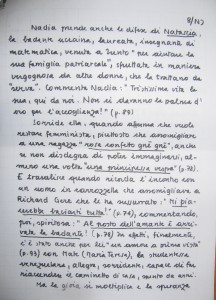 8/NJ
Nadia prende anche le difese di Natascia,
la badante ucraina, laureata, insegnante di
matematica, venuta a Trento "per aiutare la
sua famiglia patriarcale", sfruttata in maniera
vergognosa da altre donne, che la trattano da
"serva". Commenta Nadia: "Tristissima vita la
sua, qui da noi. Non si daranno le palme d'
oro per l'accoglienza!" (p. 87)
Sorride ella, quando afferma che vuole
restare femminista, piuttosto che assomigliare
a una ragazza "rosa confetto gné gné", anche
se non disdegna di poter immaginarsi, al-
meno una volta "una principessa vera" (p. 72)
È esaurire quando ricorda l'incontro con
un uomo in carrozzella che assomigliava a
Richard Gere che le ha sussurrato: "Mi pia-
cerebbe baciarti tutta!" (p. 74), commentando,
poi, spiritosa: "Al posto dell'amante è arri-
vata la badante!" (p. 78) In effetti, finalmente,
c'è stato anche per lei "un amore a prima vista"
(p. 93) con Naty (Maria Teresa), la studentessa
venezuelana, allegra, sorridente, capace di far
rinascere il cammino di casa, spento da anni.
Ma la gioia si moltiplica e la speranza